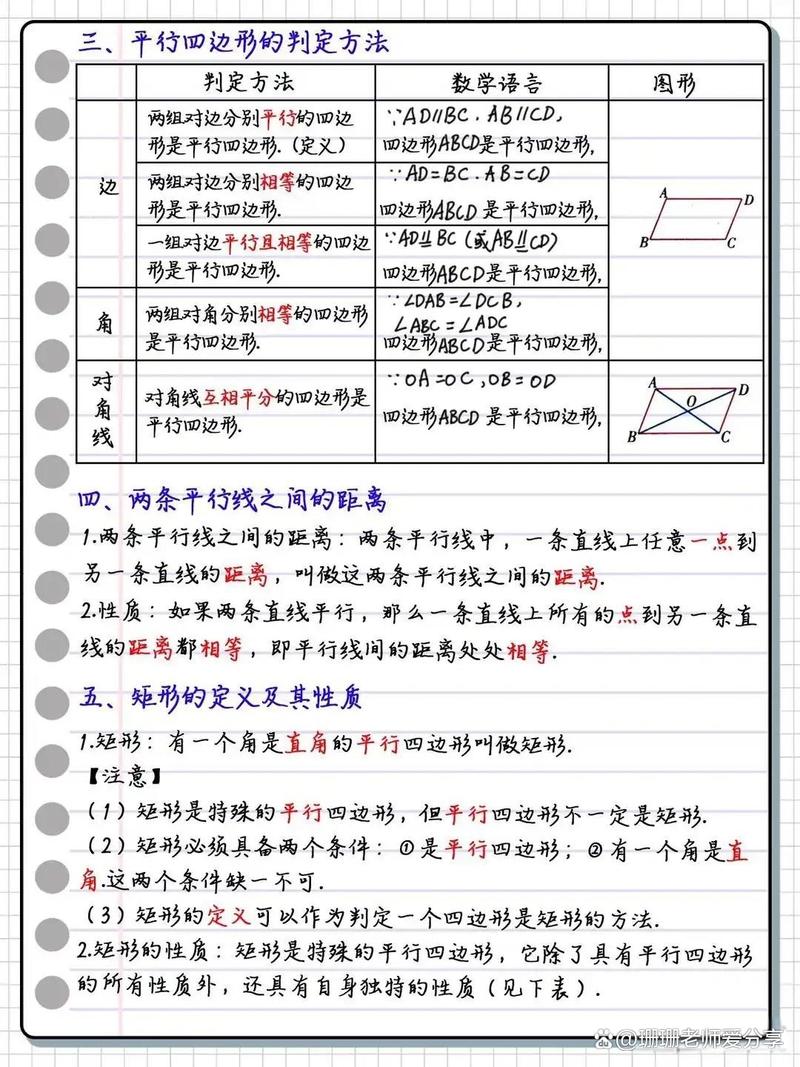 三、平行四边形的判定方法
判定方法 数学语言 图形
边
两组对边分别平行的四边
形是平行四边形.(定义)
∵AD∥BC.AB∥CD,
四边形ABCD是平行四边形,
两组对边分别相等的四边
形是平行四边形.
∵AD=BC.AB=CD
四边形ABCD是平行四边形,
一组对边平行且相等的四边
形是平行四边形.
∵AD⫫BC(或AB⫫CD)
四边形ABCD是平行四边形,
A D
B C
角
两组对角分别相等的四边形
是平行四边形.
∵∠DAB=∠DCB,
∠ABC=∠ADC
四边形ABCD是平行四边形,
对
角
线
对角线互相平分的四边形是
平行四边形.
∵OA=OC,OB=OD
四边形ABCD是平行四边形,
A D
O
B C
四、两条平行线之间的距离
1.两条平行线之间的距离:两条平行线中,一条直线上任意一点到
另一条直线的距离,叫做这两条平行线之间的距离.
2.性质:如果两条直线平行,那么一条直线上所有的点到另一条直
线的距离都相等,即平行线间的距离处处相等.
五、矩形的定义及其性质
1.矩形:有一个角是直角的平行四边形叫做矩形.
【注意】
(1)矩形是特殊的平行四边形,但平行四边形不一定是矩形.
(2)矩形必须具备两个条件:①是平行四边形;②有一个角是直
角.这两个条件缺一不可.
(3)矩形的定义可以作为判定一个四边形是矩形的方法.
2.矩形的性质:矩形是特殊的平行四边形,它除了具有平行四边形
的所有性质外,还具有自身独特的性质(见下表).
@珊珊老师爱分享